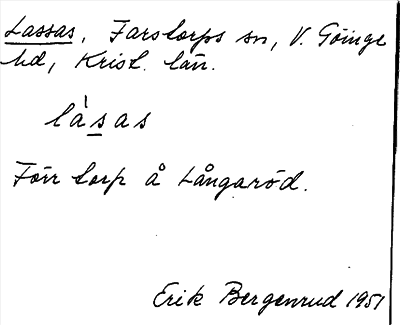 Lassas, Farstorps sn, V. Göinge
hd, Krist. län.
làsas
Förr torp å Långaröd.
Erik Bergenrud 1951